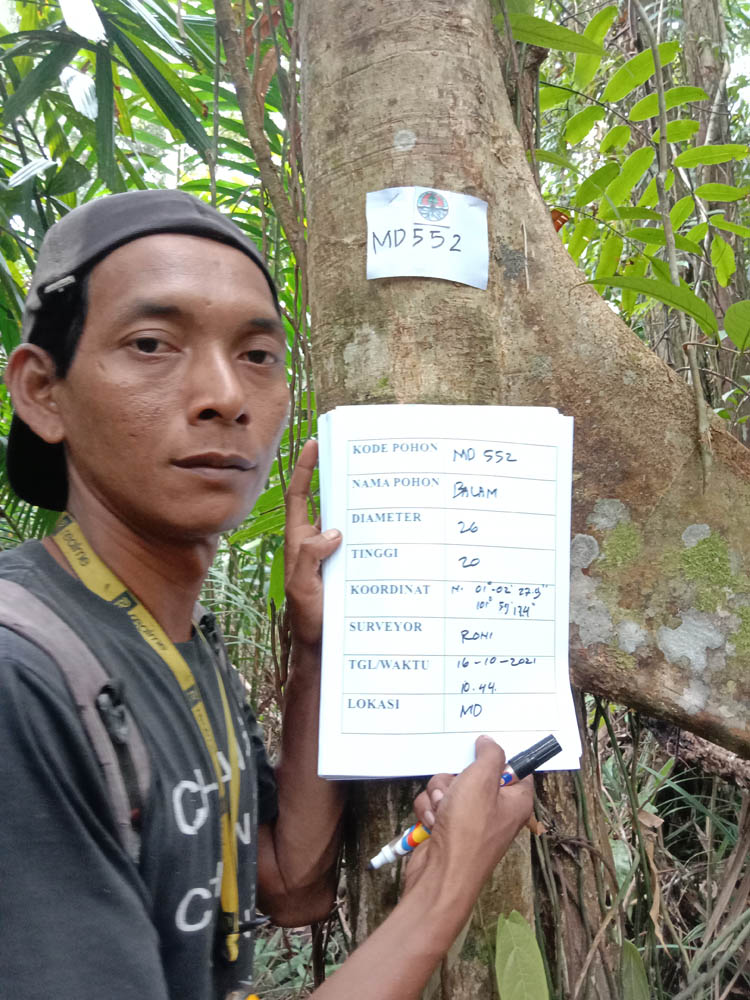 MD 552
KODE POHON MD 552
NAMA POHON BALAM
DIAMETER 26
TINGGI 20
KOORDINAT N. 01°-02' 27.9"
101° 59' 17.4"
SURVEYOR ROMI
TGL/WAKTU 16-10-2021
10.44.
LOKASI MD
realme